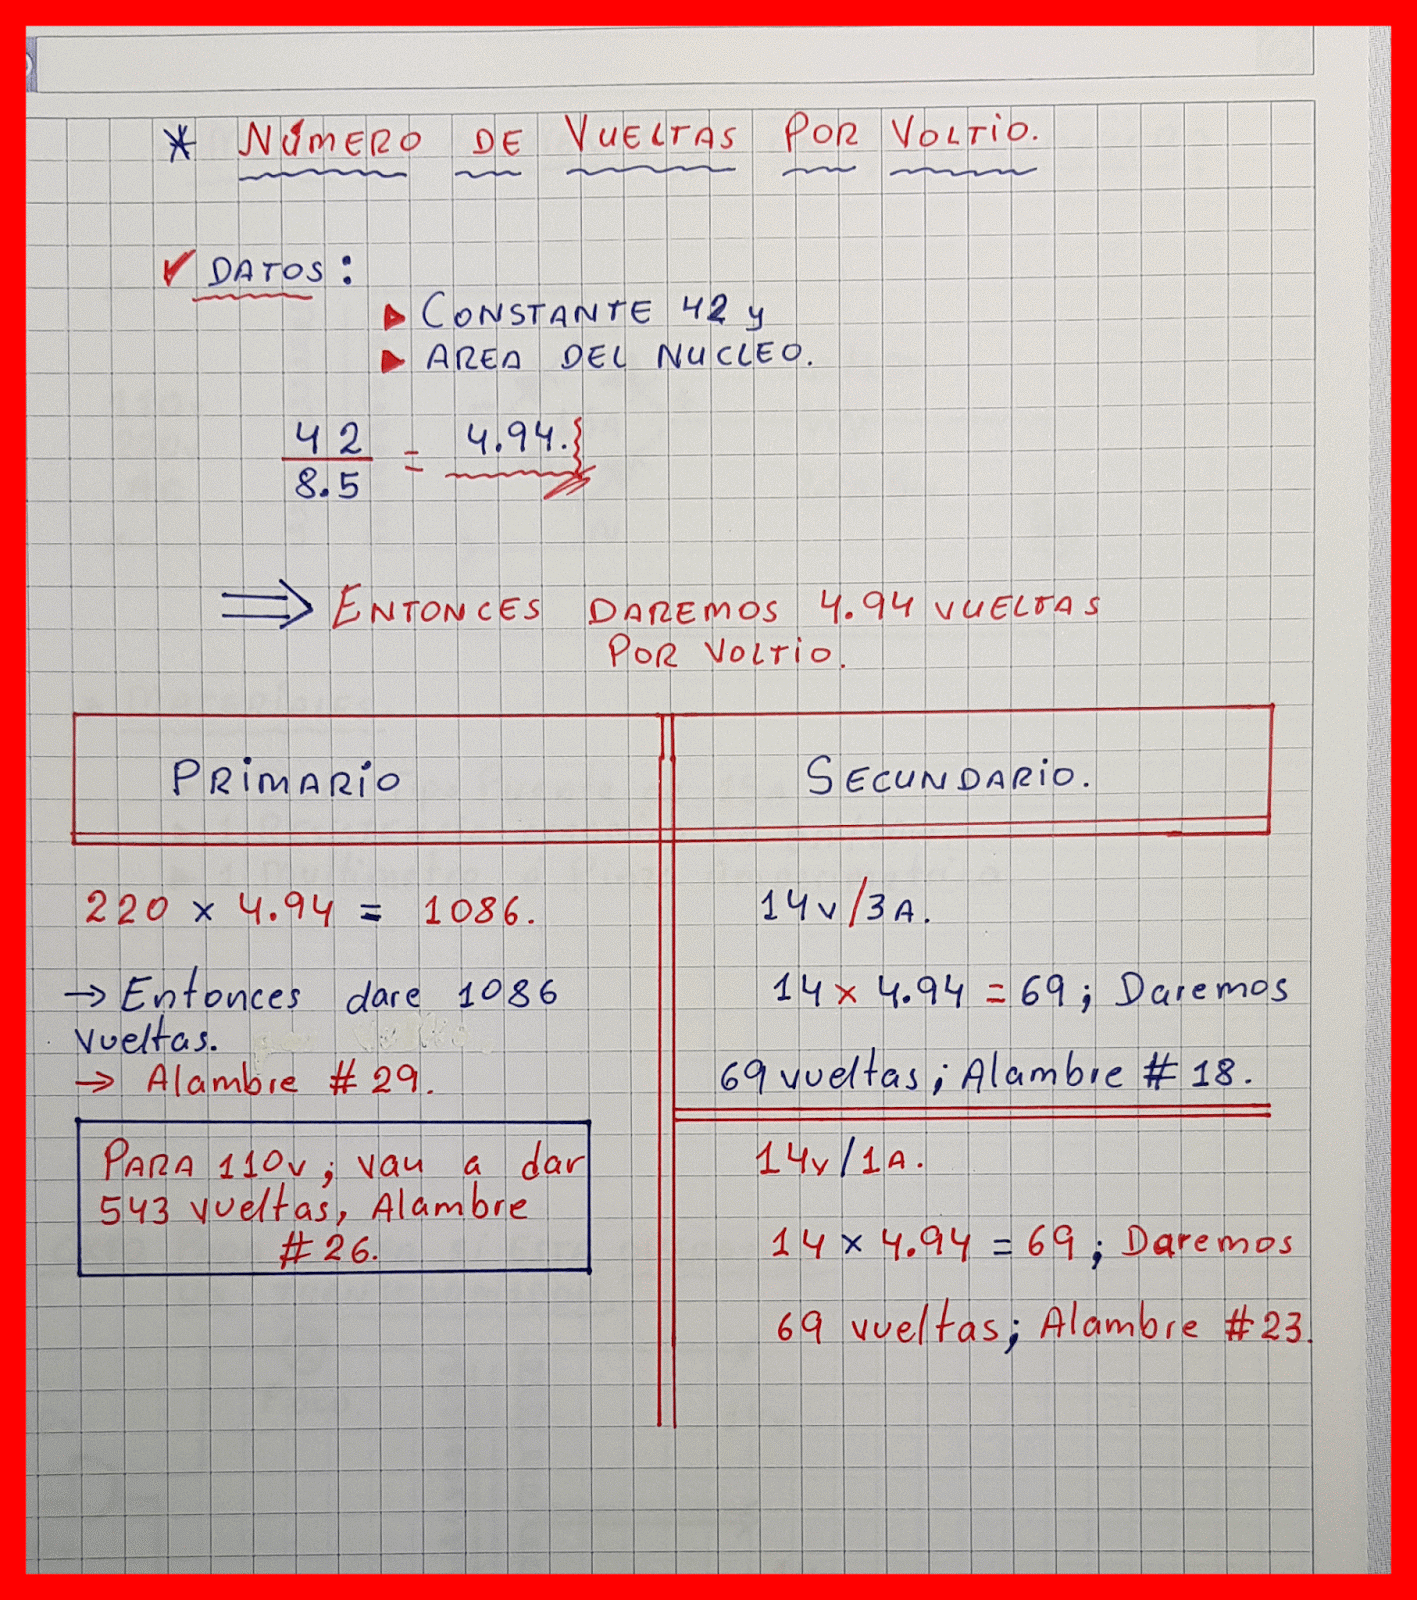 * NÚMERO DE VUELTAS POR VOLTIO.
✓ DATOS:
▶ CONSTANTE 42 y
▶ AREA DEL NUCLEO.
42 = 4.94.
8.5
⇒ ENTONCES DAREMOS 4.94 VUELTAS
POR VOLTIO.
PRIMARIO
220 x 4.94 = 1086.
→ Entonces dare 1086
vueltas.
→ Alambre # 29.
PARA 110v; van a dar
543 vueltas, Alambre
# 26.
SECUNDARIO.
14v/3A.
14 x 4.94 = 69; Daremos
69 vueltas; Alambre # 18.
14v/1A.
14 x 4.94 = 69; Daremos
69 vueltas; Alambre # 23.